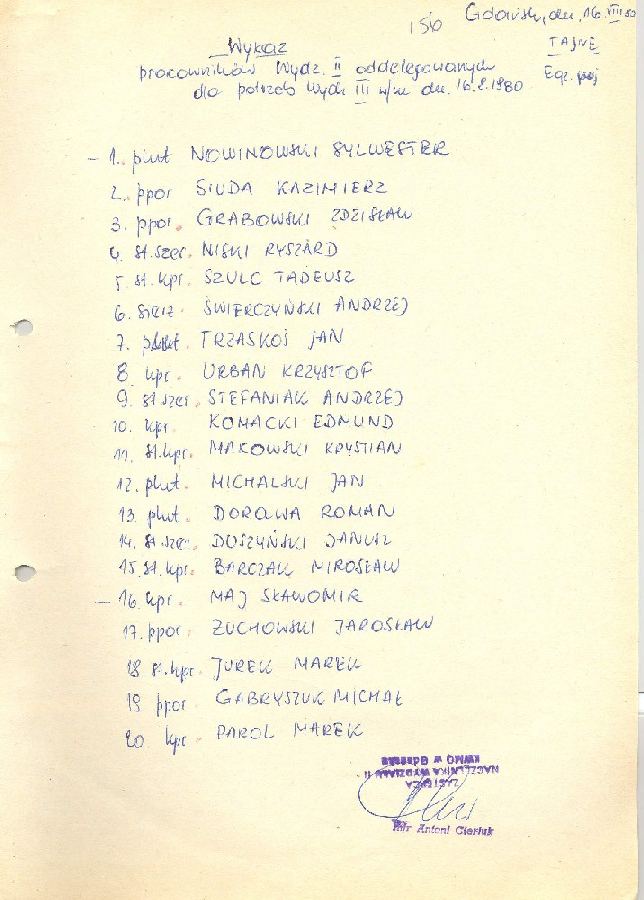 156 Gdańsk, dn. 16.VIII 80
TAJNE
Egz. poj
Wykaz
pracowników Wydz. II oddelegowanych
dla potrzeb Wydz III n/w dn. 16.8.1980
- 1. plut NOWINOWSKI SYLWESTER
2. ppor SIUDA KAZIMIERZ
3. ppor. GRABOWSKI ZDZISŁAW
4. st.szer. NISKI RYSZARD
5. st. kpr. SZULC TADEUSZ
6. sierż. ŚWIERCZYŃSKI ANDRZEJ
7. plut. TRZASKOŚ JAN
8 kpr. URBAN KRZYSZTOF
9. st szer. STEFANIAK ANDRZEJ
10. kpr. KOMACKI EDMUND
11. st.kpr. MAKOWSKI KRYSTIAN
12. plut. MICHALSKI JAN
13. plut. DOROWA ROMAN
14. st. szer. DUSZYŃSKI JANUSZ
15. st. kpr. BARCZAK MIROSŁAW
- 16. kpr. MAJ SŁAWOMIR
17. ppor. ŻUCHOWSKI JAROSŁAW
18 st. kpr. JUREK MAREK
19 ppor. GABRYSZUK MICHAŁ
20 kpr. PAROL MAREK
ZASTĘPCA
NACZELNIKA WYDZIAŁU II
KWMO w Gdańsku
mjr Antoni Cieriuk